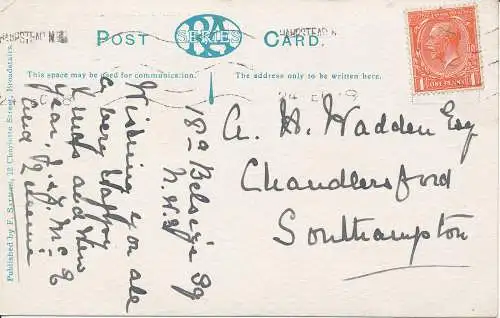 HAMPSTEAD N.W.
HAMPSTEAD N
POST
SERIES
CARD.
This space may be used for communication.
The address only to be written here.
Wishing you all
a very Happy
Xmas and New
year,
and
18a Belsize Sq
N.W.3
A. H. Wadden Esq
Chandlersford
Southampton
Published by F. 12 Charlotte Street, Broadstairs.
ONE PENNY
1
1